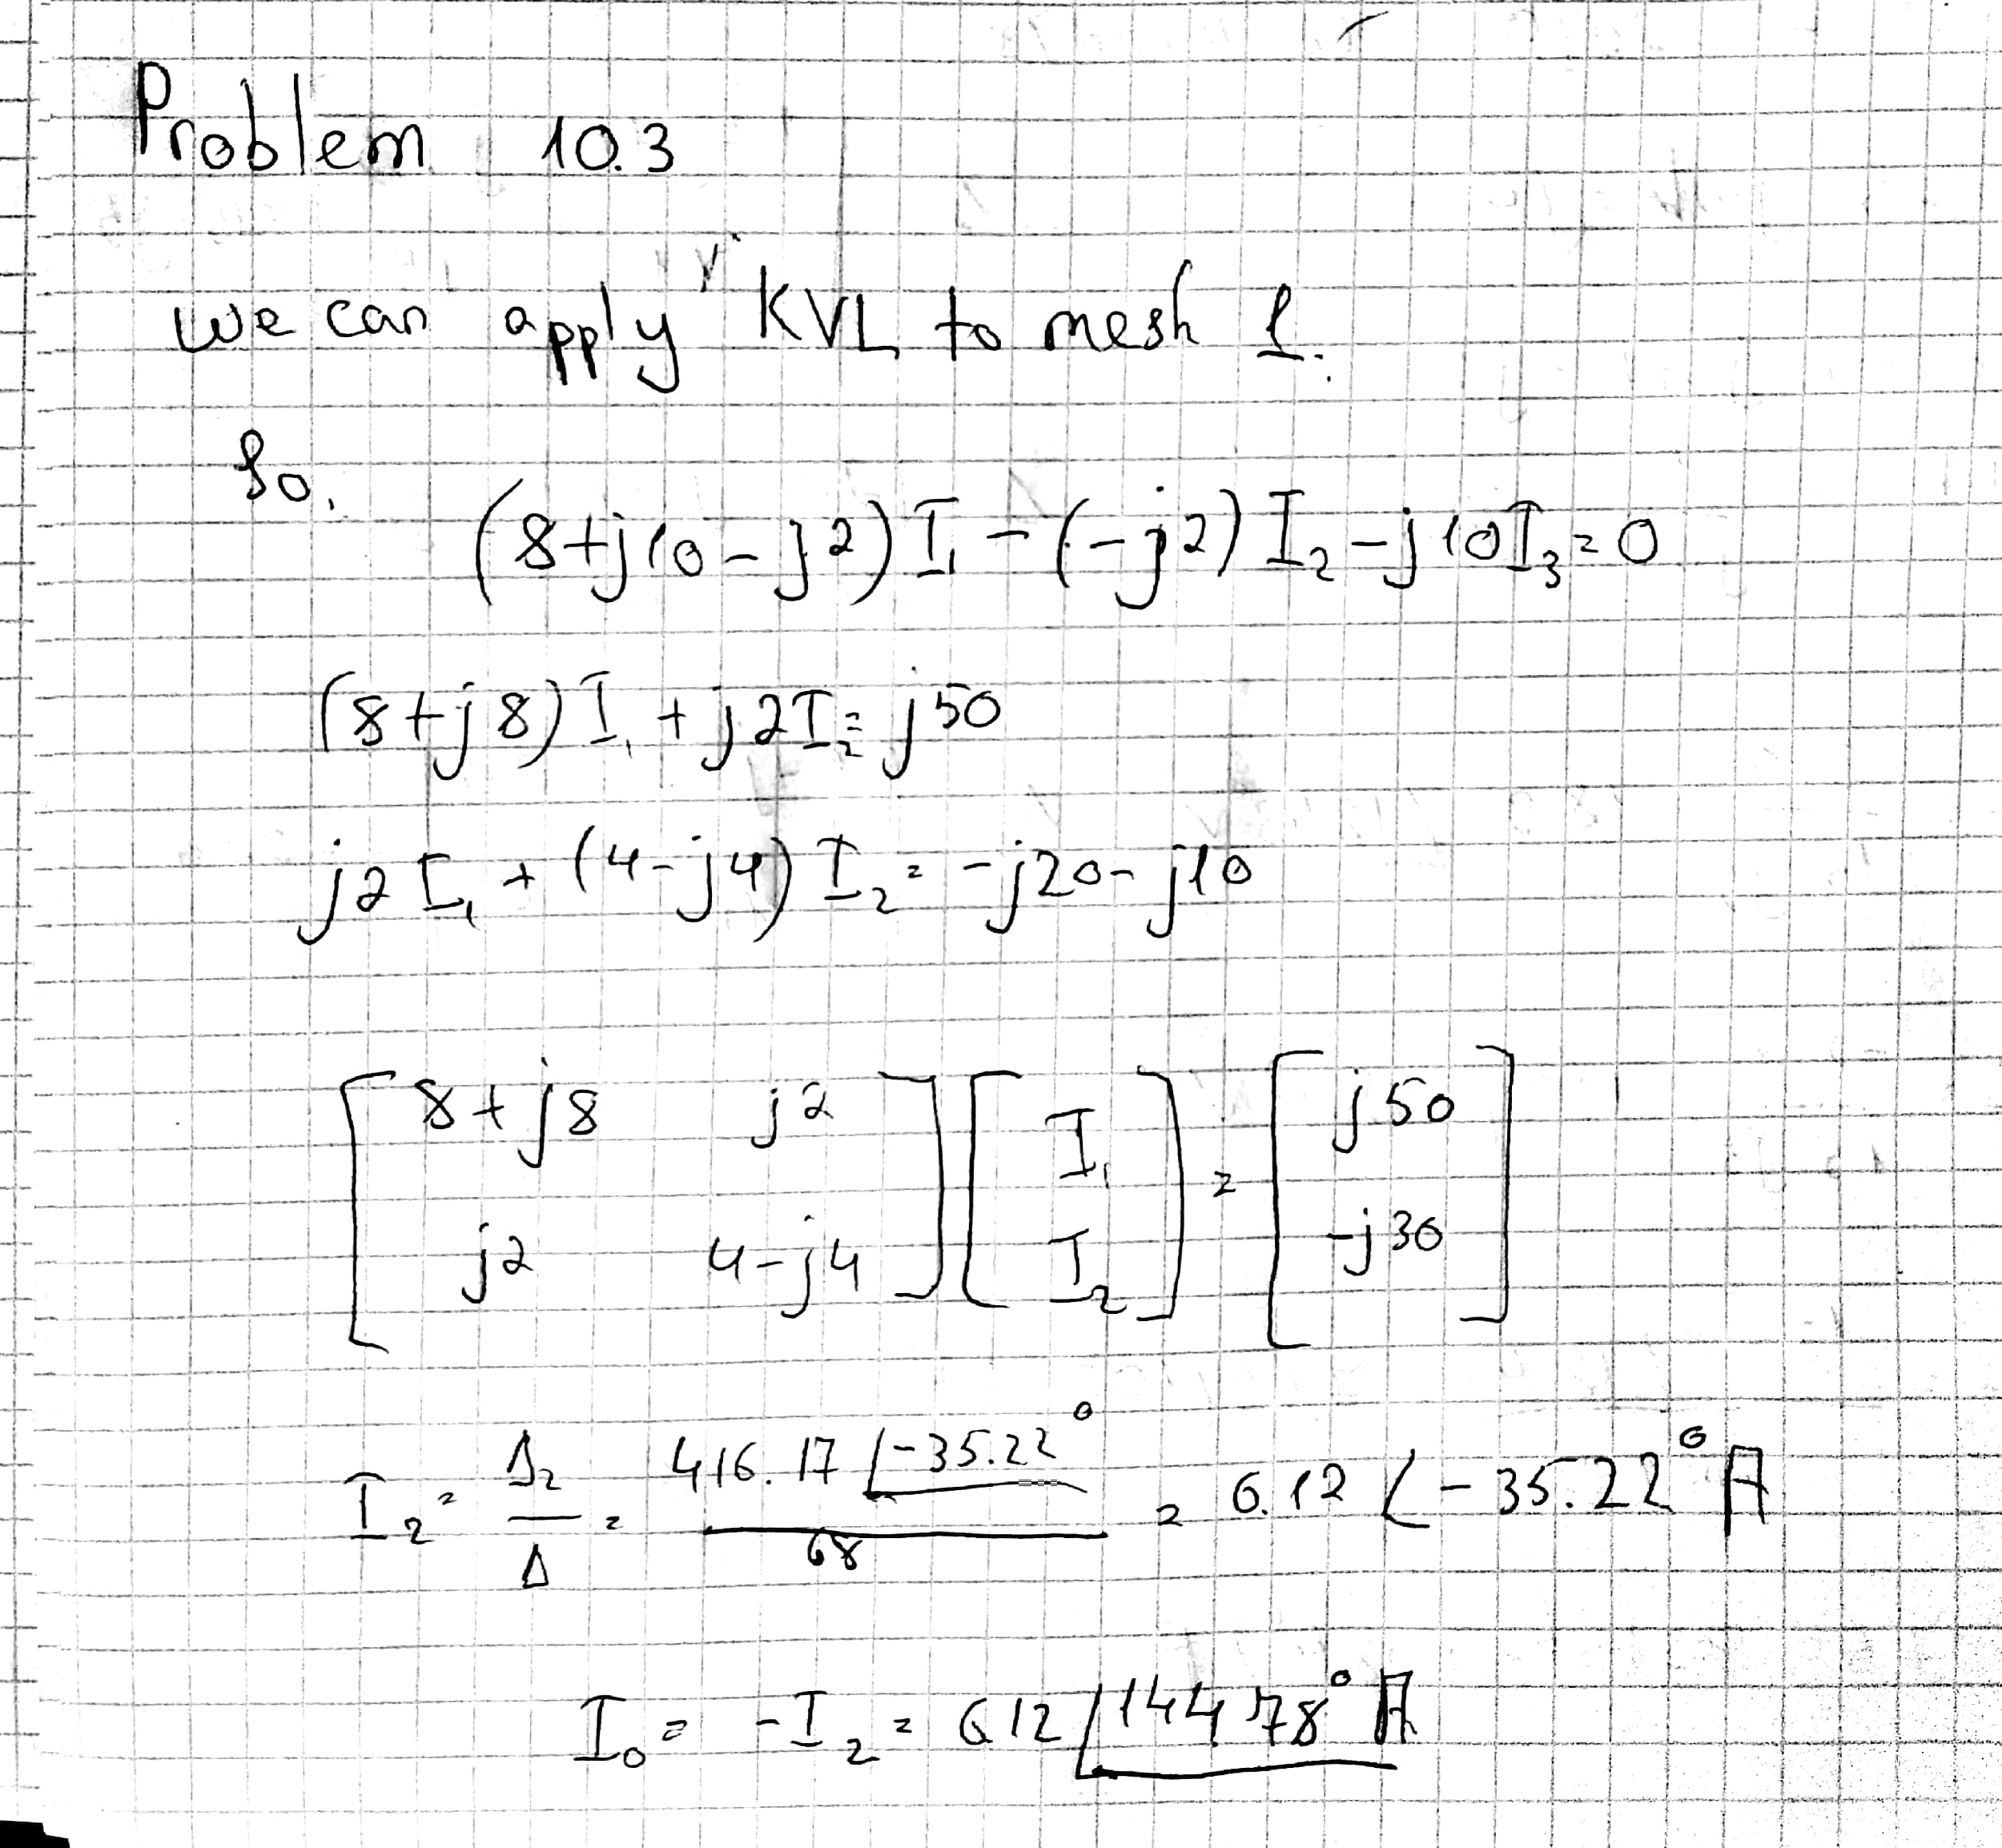 Problem 10.3
We can apply KVL to mesh 1.
So,
(8+j10-j2)I₁-(-j2)I₂-j10I₃=0
(8+j8)I₁+j2I₂=j50
j2I₁+(4-j4)I₂=-j20-j10
[8+j8 j2; j2 4-j4][I₁; I₂]=[j50; -j30]
I₂=Δ₂/Δ=416.17∠-35.22°/68=6.12∠-35.22° A
I₀=-I₂=6.12∠144.78° A